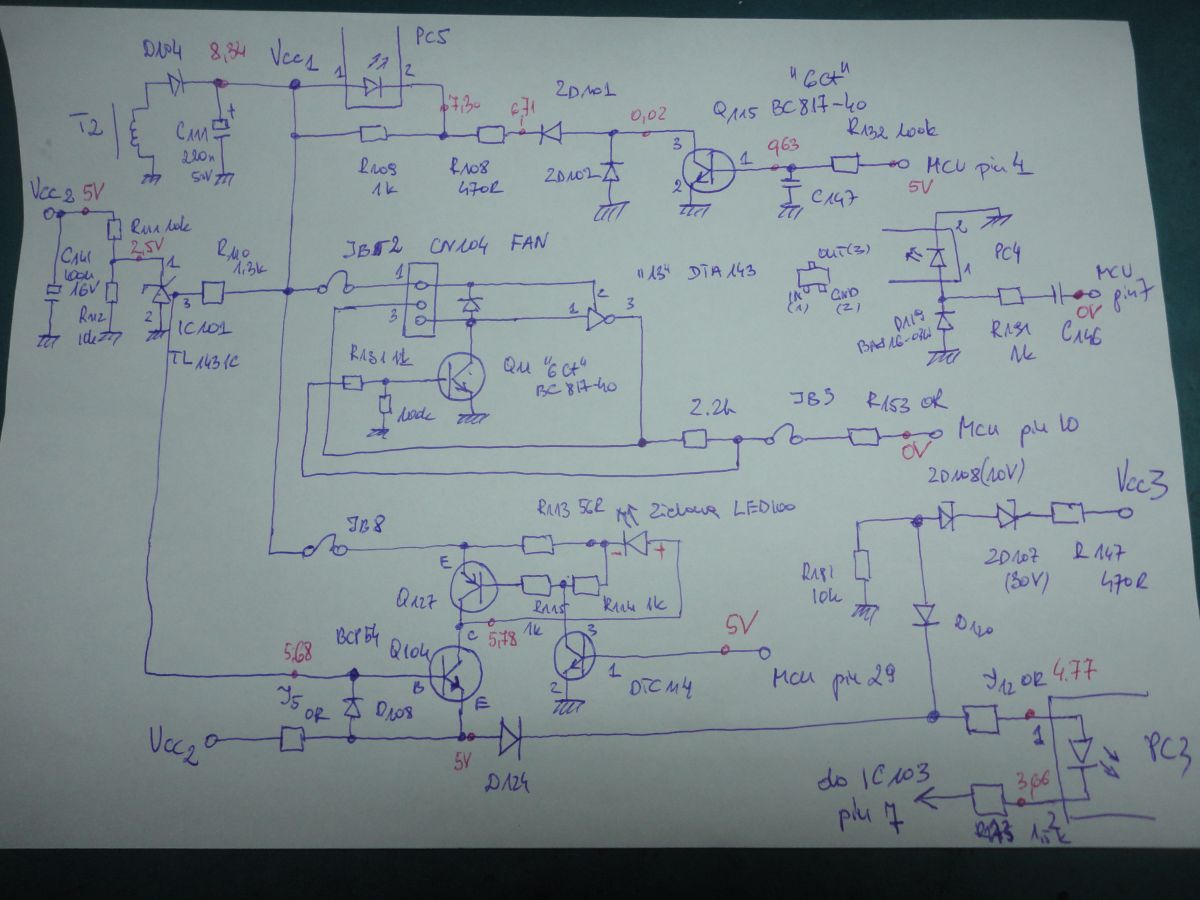 D104
8,34
Vcc1
PC5
1
2
T2
C111
220n
50V
+
7,30
6,71
ZD101
0,02
"6Ct"
Q115 BC817-40
R132 100k
R109
1k
R108
470R
ZD102
3
2
1
0,63
C147
5V
MCU pin 4
Vcc2 5V
R111 10k
2,5V
1
C141
100u
16V
R112
10k
2
3
IC101
TL1431C
R110
1,3k
CN104 FAN
1
3
"13" DTA143
1
2
3
OUT(3)
IN
(1)
GND
(2)
2
PC4
1
MCU
pin 7
0V
D119
R191
1k
C146
R131 1k
100k
Q11 "6Ct"
BC817-40
2.2k
JB3
R153 0R
0V
MCU pin 10
JB8
R113 56R
Zielona LED100
-
+
E
Q127
R115
1k
R114 1k
C
5,78
3
1
2
DTC114
5V
MCU pin 29
ZD108(10V)
Vcc3
ZD107
(30V)
R147
470R
R181
10k
D120
5,68
BCP54
Q104
B
E
J5
0R
D108
Vcc2
5V
D124
J12 0R
4.77
1
PC3
do IC103
pin 7
3,66
2